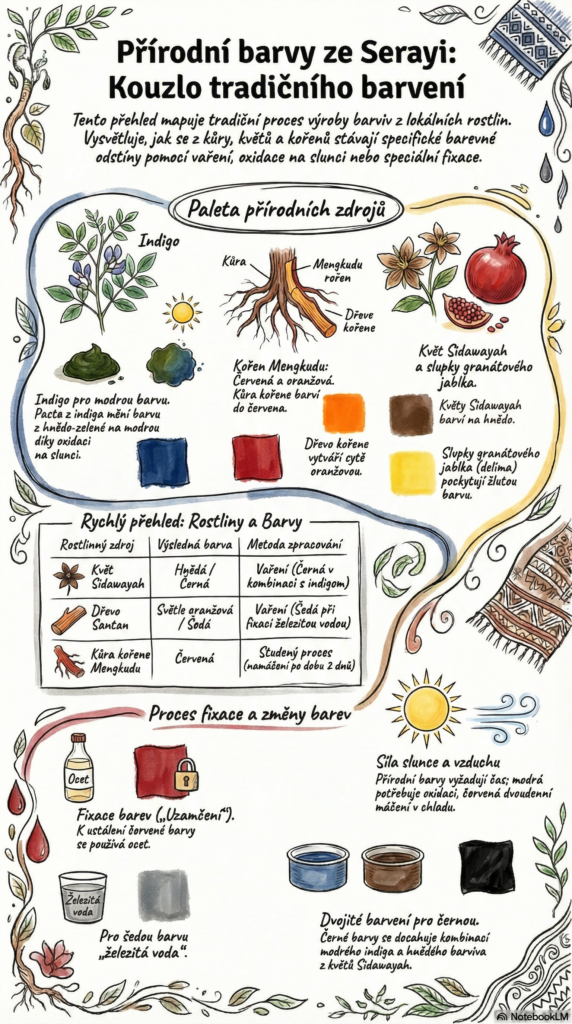 Přírodní barvy ze Serayi:
Kouzlo tradičního barvení
Tento přehled mapuje tradiční proces výroby barviv z lokálních rostlin.
Vysvětluje, jak se z kůry, květů a kořenů stávají specifické barevné
odstíny pomocí vaření, oxidace na slunci nebo speciální fixace.
Paleta přírodních zdrojů
Indigo
Indigo pro modrou barvu.
Pacta z indiga mění barvu
z hnědo-zelené na modrou
díky oxidaci
na slunci.
Kůra
Mengkudu
rořen
Dřeve
kořene
Kořen Mengkudu:
Červená a oranžová.
Kůra kořene barví
do červena.
Dřevo kořene
vytváří cytě
oranžovou.
Květ Sidawayah
a slupky granátového
jablka.
Květy Sidawayah
barví na hnědo.
Slupky granátového
jablka (delima)
pockytují žlutou
barvu.
Rychlý přehled: Rostliny a Barvy
Rostlinný zdroj Výsledná barva Metoda zpracování
Květ
Sidawayah
Hnědá /
Černá
Vaření (Černá v
kombinaci s indigom)
Dřevo
Santan
Světle oranžová
/ Šodá
Vaření (Šedá při
fixaci železitou vodou)
Kůra kořene
Mengkudu
Červená
Studený proces
(namáčení po dobu 2 dnů)
Proces fixace a změny barev
Ocet
Fixace barev („Uzamčení“).
K ustálení červené barvy
se používá ocet.
Síla slunce a vzduchu
Přírodní barvy vyžadují čas; modrá
potřebuje oxidaci, červená dvoudenní
máčení v chladu.
Železitá
voda
Pro šedou barvu
„železitá voda“.
Dvojité barvení pro černou.
Černé barvy se docahuje kombinací
modrého indiga a hnědého barviva
z květů Sidawayah.
NotebookLM